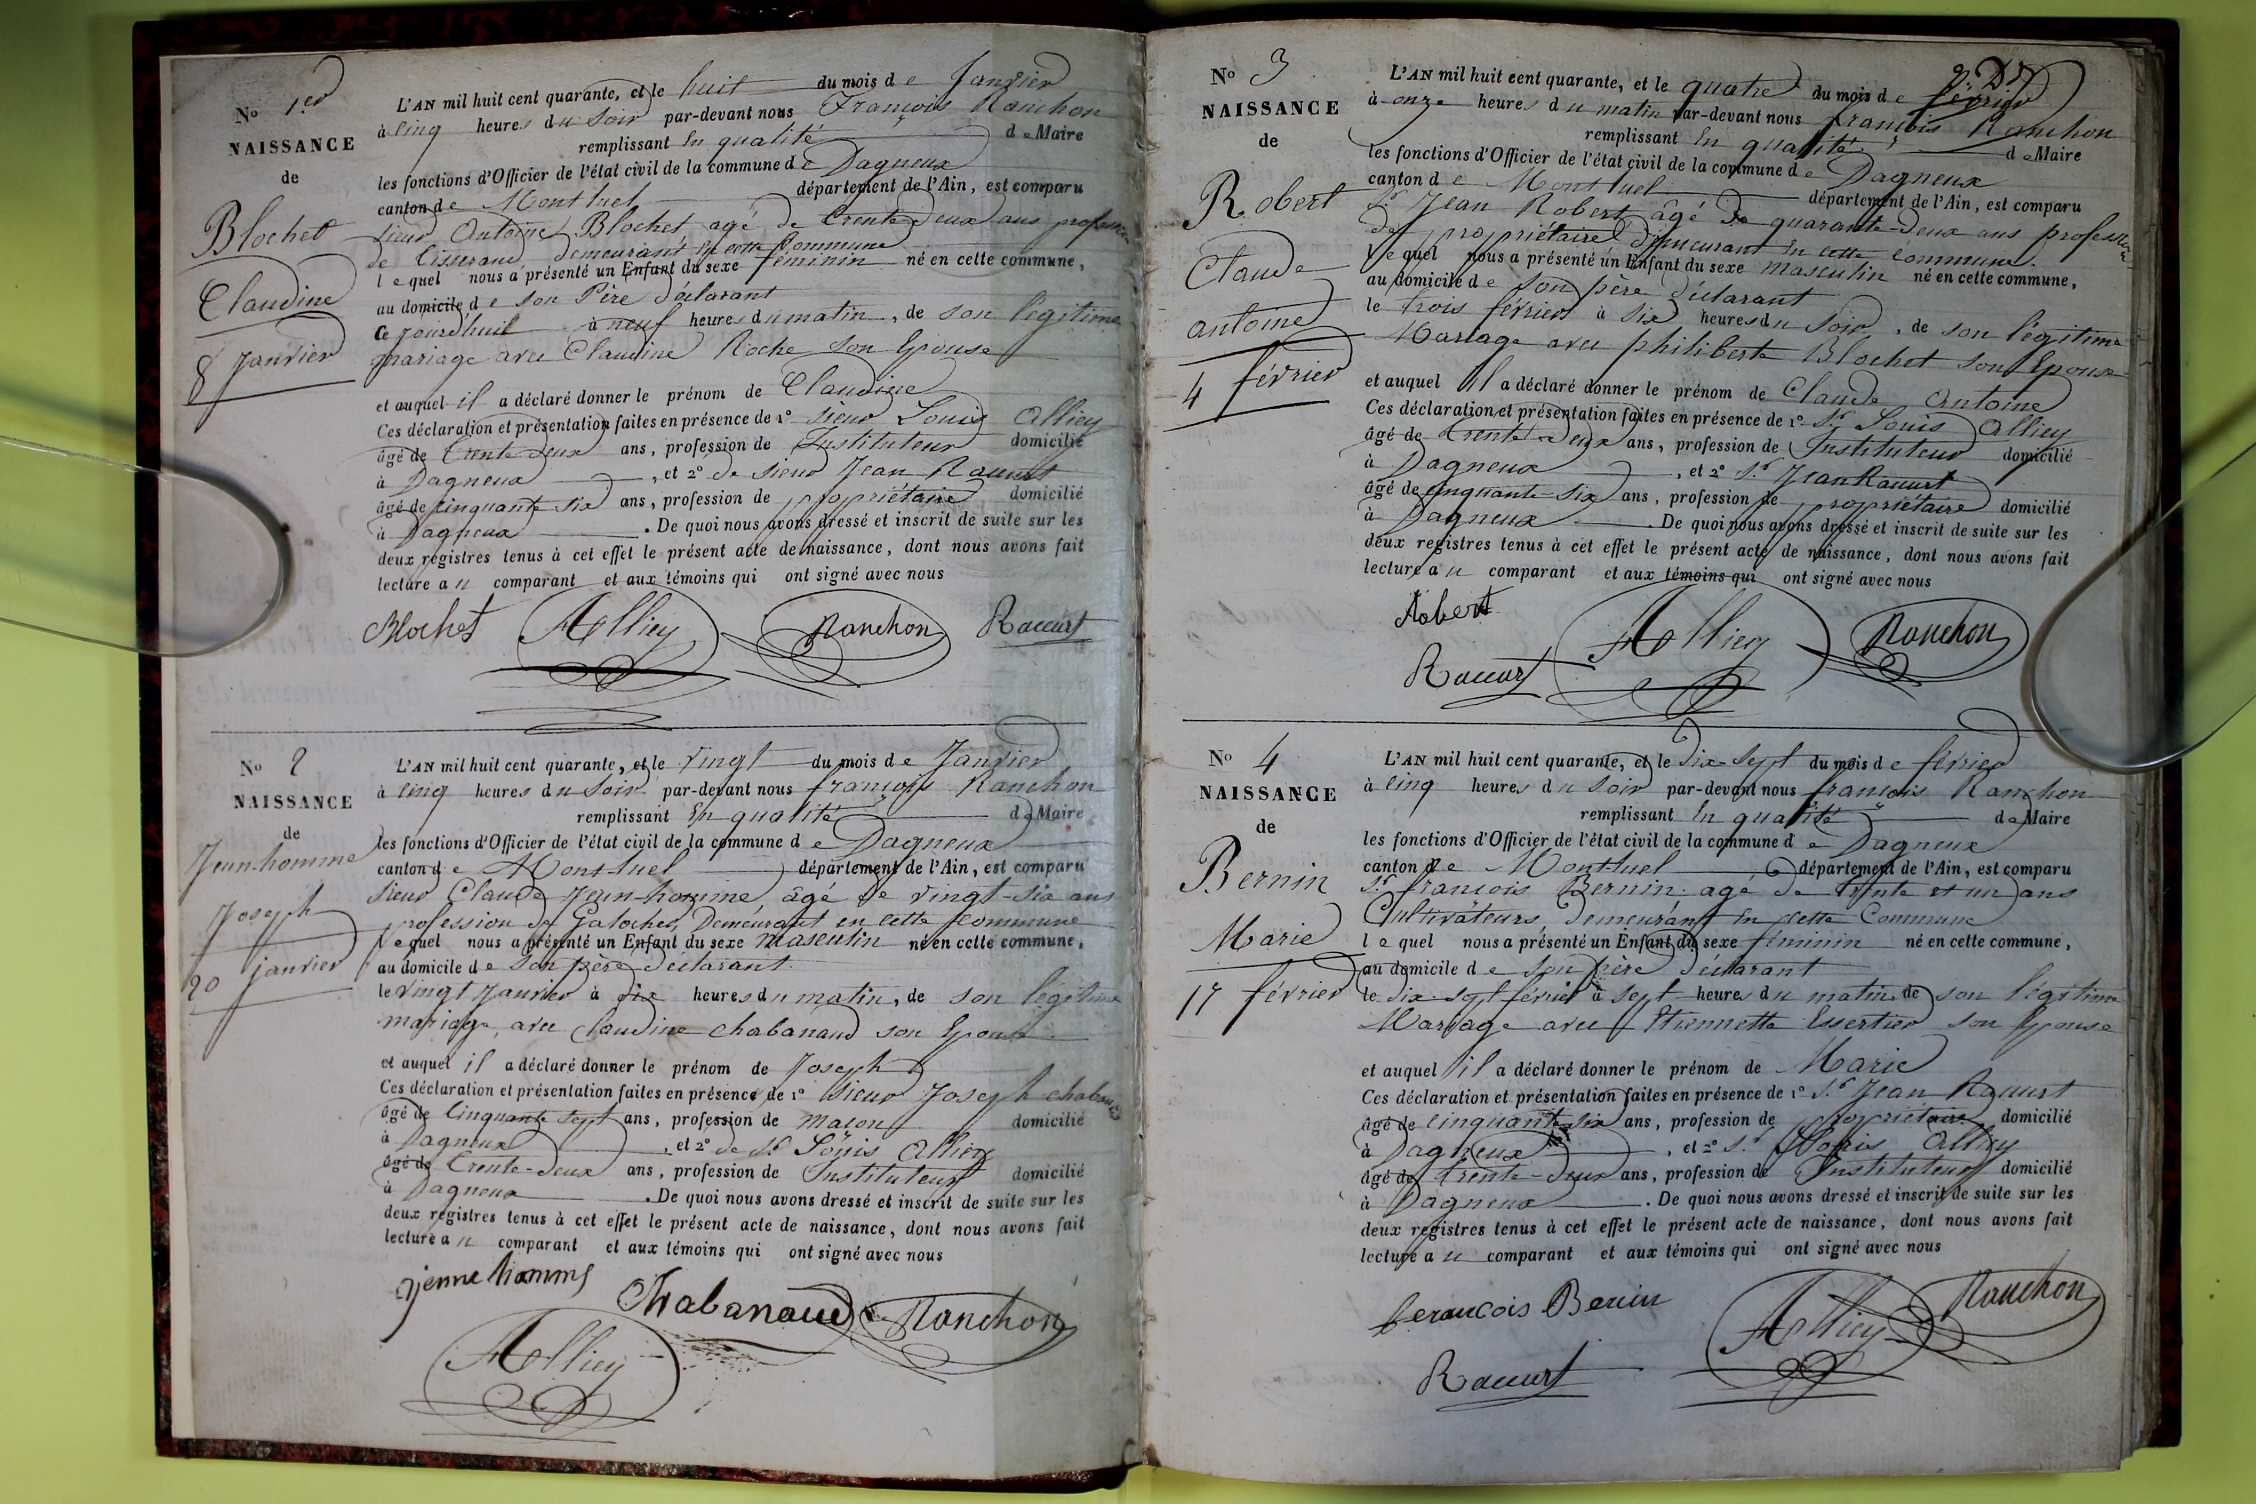 No 1er
NAISSANCE
de
Blochet
Claudine
8 Janvier
L'AN mil huit cent quarante, et le huit du mois de Janvier
à cinq heures du Soir par-devant nous François Ranchon
remplissant En qualité de Maire
les fonctions d'Officier de l'état civil de la commune de Dagneux
canton de Montluel département de l'Ain, est comparu
sieur Antoine Blochet, agé de trente deux ans profession
de tisserand demeurant en cette Commune
lequel nous a présenté un Enfant du sexe féminin né en cette commune,
au domicile de son Père déclarant
Ce jourd'huit à neuf heures du matin, de son légitime
mariage avec Claudine Roche son Epouse
et auquel il a déclaré donner le prénom de Claudine
Ces déclaration et présentation faites en présence de 1° sieur Louis Alliey
âgé de trente deux ans, profession de Instituteur domicilié
à Dagneux, et 2° de sieur Jean Raccurt
âgé de cinquante six ans, profession de propriétaire domicilié
à Dagneux. De quoi nous avons dressé et inscrit de suite sur les
deux registres tenus à cet effet le présent acte de naissance, dont nous avons fait
lecture au comparant et aux témoins qui ont signé avec nous
Blochet Alliey Ranchon Raccurt
No 2
NAISSANCE
de
Jeun-homme
Joseph
20 janvier
L'AN mil huit cent quarante, et le vingt du mois de Janvier
à cinq heures du Soir par-devant nous françois Ranchon
remplissant En qualité de Maire
les fonctions d'Officier de l'état civil de la commune de Dagneux
canton de Mont-luel département de l'Ain, est comparu
sieur Claude Jeun-homme, âgé de vingt-six ans
profession de Galocher, Demeurant en cette commune
lequel nous a présenté un Enfant du sexe masculin né en cette commune,
au domicile de son père déclarant
le vingt Janvier à dix heures du matin, de son légitime
mariage, avec Claudine chabanaud son Epouse
et auquel il a déclaré donner le prénom de Joseph
Ces déclaration et présentation faites en présence de 1° sieur Joseph chabanaud
âgé de Cinquante sept ans, profession de maçon domicilié
à Dagneux, et 2° de Sr Louis Alliey
âgé de trente-deux ans, profession de Instituteur domicilié
à Dagneux. De quoi nous avons dressé et inscrit de suite sur les
deux registres tenus à cet effet le présent acte de naissance, dont nous avons fait
lecture au comparant et aux témoins qui ont signé avec nous
jenne homme Chabanaud Ranchon
Alliey
No 3
NAISSANCE
de
Robert
Claude
antoine
4 février
L'AN mil huit cent quarante, et le quatre du mois de février
à onze heures du matin par-devant nous françois Ranchon
remplissant En qualité de Maire
les fonctions d'Officier de l'état civil de la commune de Dagneux
canton de Mont luel département de l'Ain, est comparu
Sr Jean Robert âgé de quarante-deux ans profession
de propriétaire demeurant en cette commune.
lequel nous a présenté un Enfant du sexe masculin né en cette commune,
au domicile de son père déclarant
le trois février à six heures du Soir, de son légitime
Mariage avec philiberte Blochet son Epouse
et auquel il a déclaré donner le prénom de Claude Antoine
Ces déclaration et présentation faites en présence de 1° Sr Louis Alliey
âgé de trente-deux ans, profession de Instituteur domicilié
à Dagneux, et 2° Sr Jean Raccurt
âgé de cinquante-six ans, profession de propriétaire domicilié
à Dagneux. De quoi nous avons dressé et inscrit de suite sur les
deux registres tenus à cet effet le présent acte de naissance, dont nous avons fait
lecture au comparant et aux témoins qui ont signé avec nous
Robert Alliey Ranchon
Raccurt
No 4
NAISSANCE
de
Bernin
Marie
17 février
L'AN mil huit cent quarante, et le dix-sept du mois de février
à cinq heures du soir par-devant nous francois Ranchon
remplissant En qualité de Maire
les fonctions d'Officier de l'état civil de la commune de Dagneux
canton de Mont-luel département de l'Ain, est comparu
Sr françois Bernin agé de trente et un ans
Cultivateurs, demeurant en cette Commune
lequel nous a présenté un Enfant du sexe féminin né en cette commune,
au domicile de son père déclarant
le dix-sept février à sept heures du matin, de son légitime
Mariage avec Etiennette Essertier son Epouse
et auquel il a déclaré donner le prénom de Marie
Ces déclaration et présentation faites en présence de 1° Sr Jean Raccurt
âgé de cinquante six ans, profession de propriétaire domicilié
à Dagneux, et 2° Sr Louis Alliey
âgé de trente-deux ans, profession de Instituteur domicilié
à Dagneux. De quoi nous avons dressé et inscrit de suite sur les
deux registres tenus à cet effet le présent acte de naissance, dont nous avons fait
lecture au comparant et aux témoins qui ont signé avec nous
francois Bernin Alliey Ranchon
Raccurt